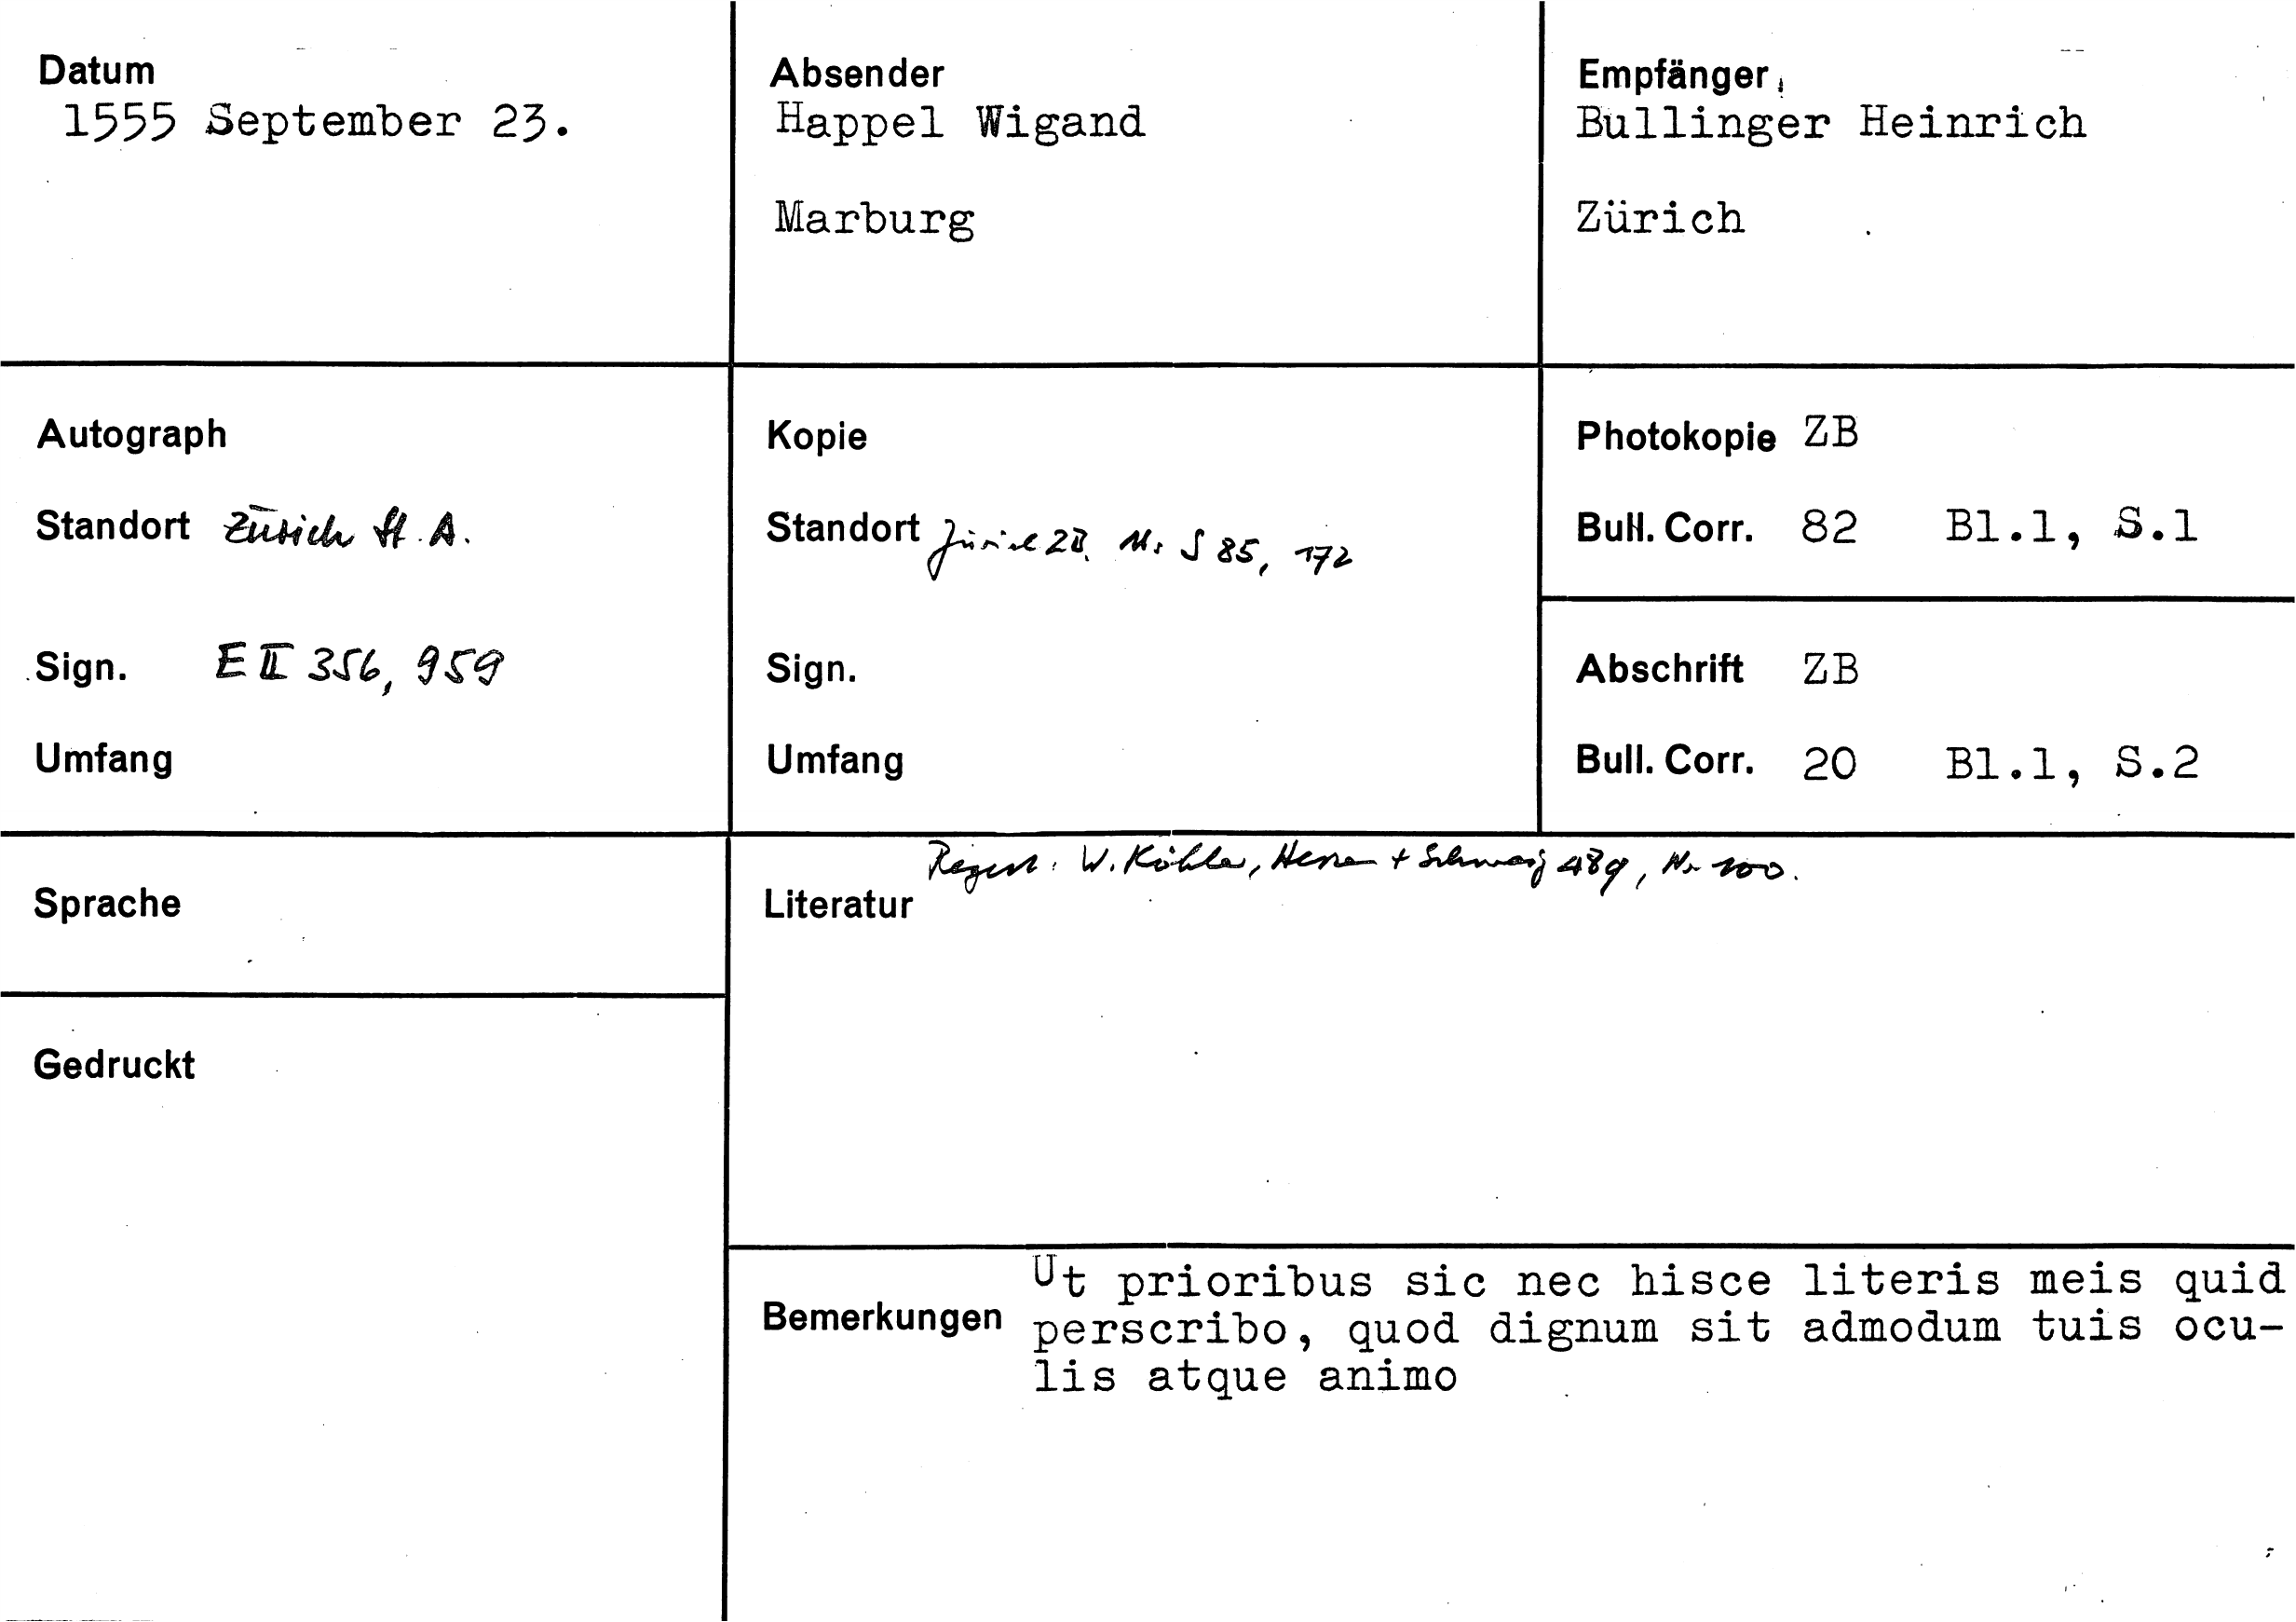 Datum
1555 September 23.
Absender
Happel Wigand
Marburg
Empfänger
Bullinger Heinrich
Zürich
Autograph
Standort Zürich St. A.
Sign. E II 356, 959
Umfang
Kopie
Standort Zürich ZB. Ms S 85, 172
Sign.
Umfang
Photokopie ZB
Bull. Corr. 82 Bl.1, S.1
Abschrift ZB
Bull. Corr. 20 Bl.1, S.2
Sprache
Gedruckt
Regest: W. Köhler, Hessen + Schweiz 489, Nr. 100.
Literatur
Bemerkungen
Ut prioribus sic nec hisce literis meis quid
perscribo, quod dignum sit admodum tuis ocu-
lis atque animo